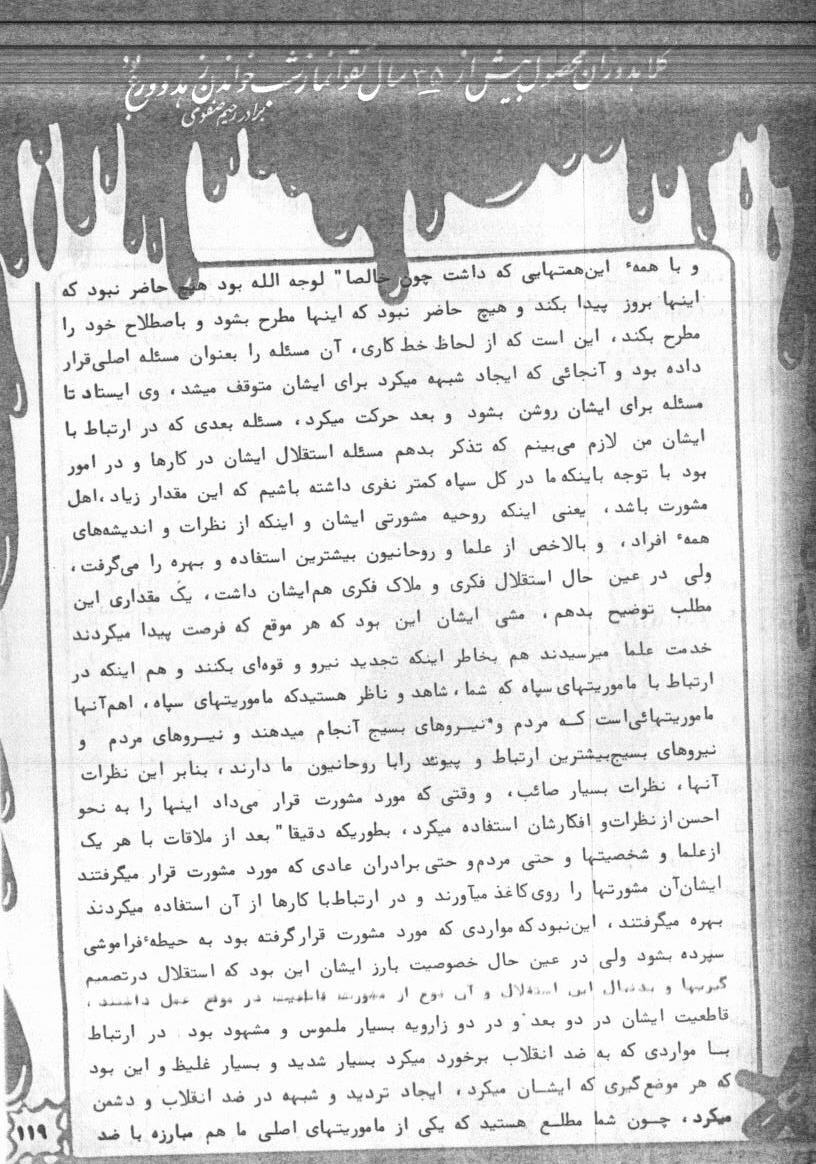 کلاهدوزان محصول بیش از ۳۵ سال تقوا نماز شب خواندن زهد و ورع بود
برادر رحیم صفوی
و با همهٔ این‌همتهایی که داشت چون خالصا" لوجه الله بود هیچ حاضر نبود که
اینها بروز پیدا بکند و هیچ حاضر نبود که اینها مطرح بشود و باصطلاح خود را
مطرح بکند، این است که از لحاظ خط کاری، آن مسئله را بعنوان مسئله اصلی‌قرار
داده بود و آنجائی که ایجاد شبهه میکرد برای ایشان متوقف میشد، وی ایستاد تا
مسئله برای ایشان روشن بشود و بعد حرکت میکرد، مسئله بعدی که در ارتباط با
ایشان من لازم می‌بینم که تذکر بدهم مسئله استقلال ایشان در کارها و در امور
بود با توجه باینکه‌ ما در کل سپاه کمتر نفری داشته باشیم که این مقدار زیاد،اهل
مشورت باشد، یعنی اینکه روحیه مشورتی ایشان و اینکه از نظرات و اندیشه‌های
همهٔ افراد، و بالاخص از علما و روحانیون بیشترین استفاده و بهره را می‌گرفت،
ولی در عین حال استقلال فکری و ملاک فکری هم‌ایشان داشت، یک مقداری این
مطلب توضیح بدهم، مشی ایشان این بود که هر موقع که فرصت پیدا میکردند
خدمت علما میرسیدند هم بخاطر اینکه تجدید نیرو و قوه‌ای بکنند و هم اینکه در
ارتباط با ماموریتهای سپاه که شما، شاهد و ناظر هستیدکه ماموریتهای سپاه، اهم‌آنها
ماموریتهائی‌است که مردم و نیروهای بسیج آنجام میدهند و نیروهای مردم و
نیروهای بسیج‌بیشترین ارتباط و پیوند رابا روحانیون ما دارند، بنابر این نظرات
آنها، نظرات بسیار صائب، و وقتی که مورد مشورت قرار می‌داد اینها را به نحو
احسن از نظرات‌و افکارشان استفاده میکرد، بطوریکه دقیقا" بعد از ملاقات با هر یک
ازعلما و شخصیتها و حتی مردم‌و حتی برادران عادی که مورد مشورت قرار میگرفتند
ایشان‌آن مشورتها را روی‌کاغذ میآورند و در ارتباط‌با کارها از آن استفاده میکردند
بهره میگرفتند، این‌نبود که مواردی که مورد مشورت قرارگرفته بود به حیطهٔ‌فراموشی
سپرده بشود ولی در عین حال خصوصیت بارز ایشان این بود که استقلال درتصمیم
گیریها و بدنبال این استقلال و آن نوع از مشورت قاطعیت در موقع عمل داشتند،
قاطعیت ایشان در دو بعد و در دو زارویه بسیار ملموس و مشهود بود در ارتباط
بـا مواردی که به ضد انقلاب برخورد میکرد بسیار شدید و بسیار غلیظ و این بود
که هر موضع گیری که ایشـان میکرد، ایجاد تردید و شبهه در ضد انقلاب و دشمن
میکرد، چـون شما مطلـع هستید که یکی از ماموریتهای اصلی ما هم مبارزه با ضد
۱۱۹